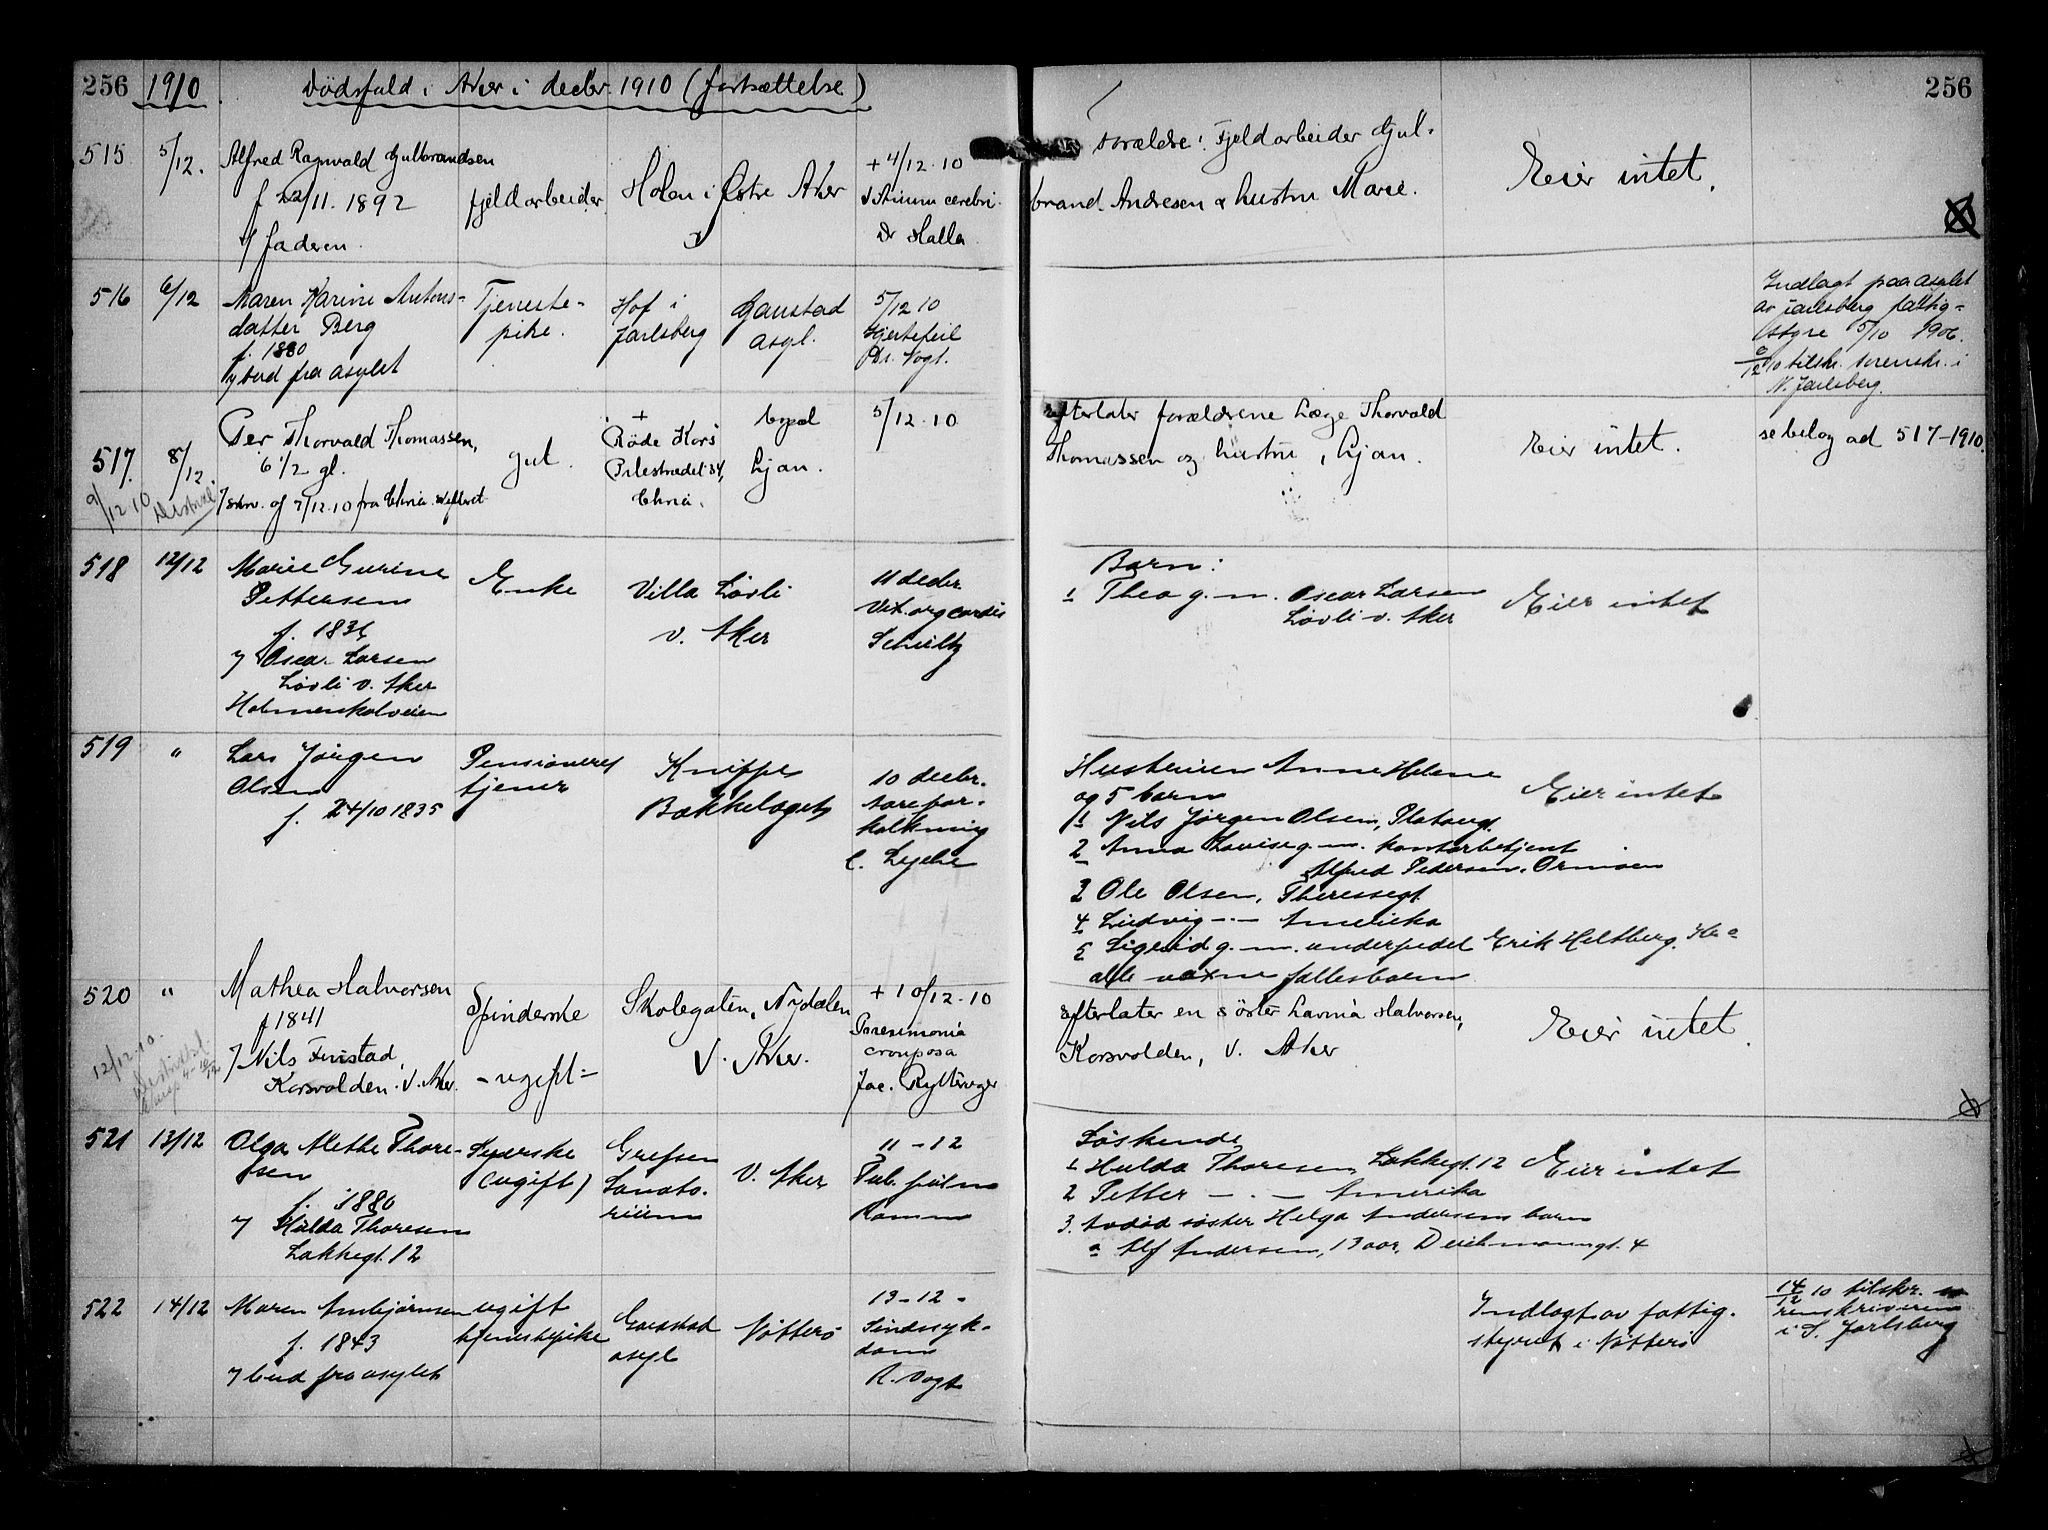 256 1910 Dödsfald i Aker i decbr. 1910 (fortsættelse) 256
515 5/12. Alfred Ragnvald Gulbrandsen
f 22/11. 1892
v/ faderen.
fjeldarbeider.
Holen i Østre Aker
+ 4/12. 10
cerebri.
Dr Halla
Forældre: Fjeldarbeider Gul-
brand Andresen & hustru Marie.
Eier intet.
516 6/12 Maren Karine Antons-
datter Berg
f. 1880
v/ bud fra asylet
Tjeneste-
pike.
Hof i
Jarlsberg
Gaustad
asyl.
5/12 10
Hjertefeil
Dr. Vogt.
Indlagt paa asylet
av Jarlsberg fattig-
styre 5/10 1906.
6/12 10 tilskr. sorenskr. i
N. Jarlsberg.
517. 8/12. Per Thorvald Thomassen,
6 1/2 gl.
v/ skr. af 7/12.10 fra Chria. skifteret
9/12 10
gut.
+
Røde Kors
Pilestrædet 34,
Chria.
bopæl
Ljan.
5/12. 10
Efterlater forældrene Læge Thorvald
Thomassen og hustru, Ljan.
Eier intet.
se bilag ad 517-1910.
518 12/12 Marie Gurine
Pettersen
f. 1836
v/ Oscar Larsen
Løvli v. Aker
Holmenkolveien
Enke
Villa Løvli
v. Aker
11 decbr.
Vit. org cordis
Schultz
Barn:
1 Thea g. m. Oscar Larsen
Løvli v. Aker
Eier intet
519 " Lars Jørgen
Olsen
f. 24/10 1835
Pensioneret
tjener
Knippe
Bækkelaget
10 decbr.
Aarefor-
kalkning
C. Lyche
Hustruen Anne Helene
og 5 barn
1 Nils Jørgen Olsen, Platougt.
2 Anna Lovise g. m. kontorbetjent
Alfred Pedersen, Ormøen
3 Ole Olsen, Theresesgt.
4 Ludvig -"- Amerika
5 Sigrid g. m. underpedel Erik Heltberg. Kra
alle voxne fællesbarn
Eier intet
520 " Mathea Halvorsen
f 1841
v/ Nils Finstad,
Korsvolden. V. Aker.
12/12.10.
Spinderske
- ugift -
Skolegaten, Nydalen
V. Aker.
+ 10/12. 10
Pneumonia
crouposa
Jac. Rytterager
Efterlater en søster Lavina Halvorsen,
Korsvolden, V. Aker
Eier intet.
521 13/12 Olga Alethe Thore-
sen
f. 1880
v/ Hulda Thoresen
Lakkegt. 12
Syerske
(ugift)
Grefsen
Sanato-
rium
V. Aker
11-12
Tub. pulm
Ramm
Søskende
1 Hulda Thoresen, Lakkegt. 12
2 Petter -"- Amerika
3. Avdød søster Helga Andersens barn
a Alf Andersen, 13 aar, Deichmannsgt. 4
Eier intet
522 14/12 Maren Ambjørnsen
f. 1843
v/ bud fra asylet
ugift
tjenestepike
Gaustad
asyl
Nøtterø
13-12-
Sindssyk-
dom
R. Vogt
Indlagt av fattig-
styret i Nøtterø
14/12 10 tilskr. so-
renskriveren
i S. Jarlsberg